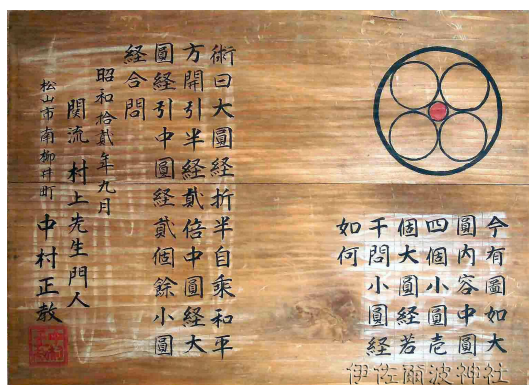 今有圖如大
圓内容中圓
四個小圓壱
個大圓経若
干問小圓経
如何
術曰大圓経折半自乗和平
方開引半経貳倍中圓経大
圓経引中圓経貳個餘小圓
経合問
昭和拾貳年九月
関流 村上先生門人
松山市南柳井町 中村正教
伊佐爾波神社